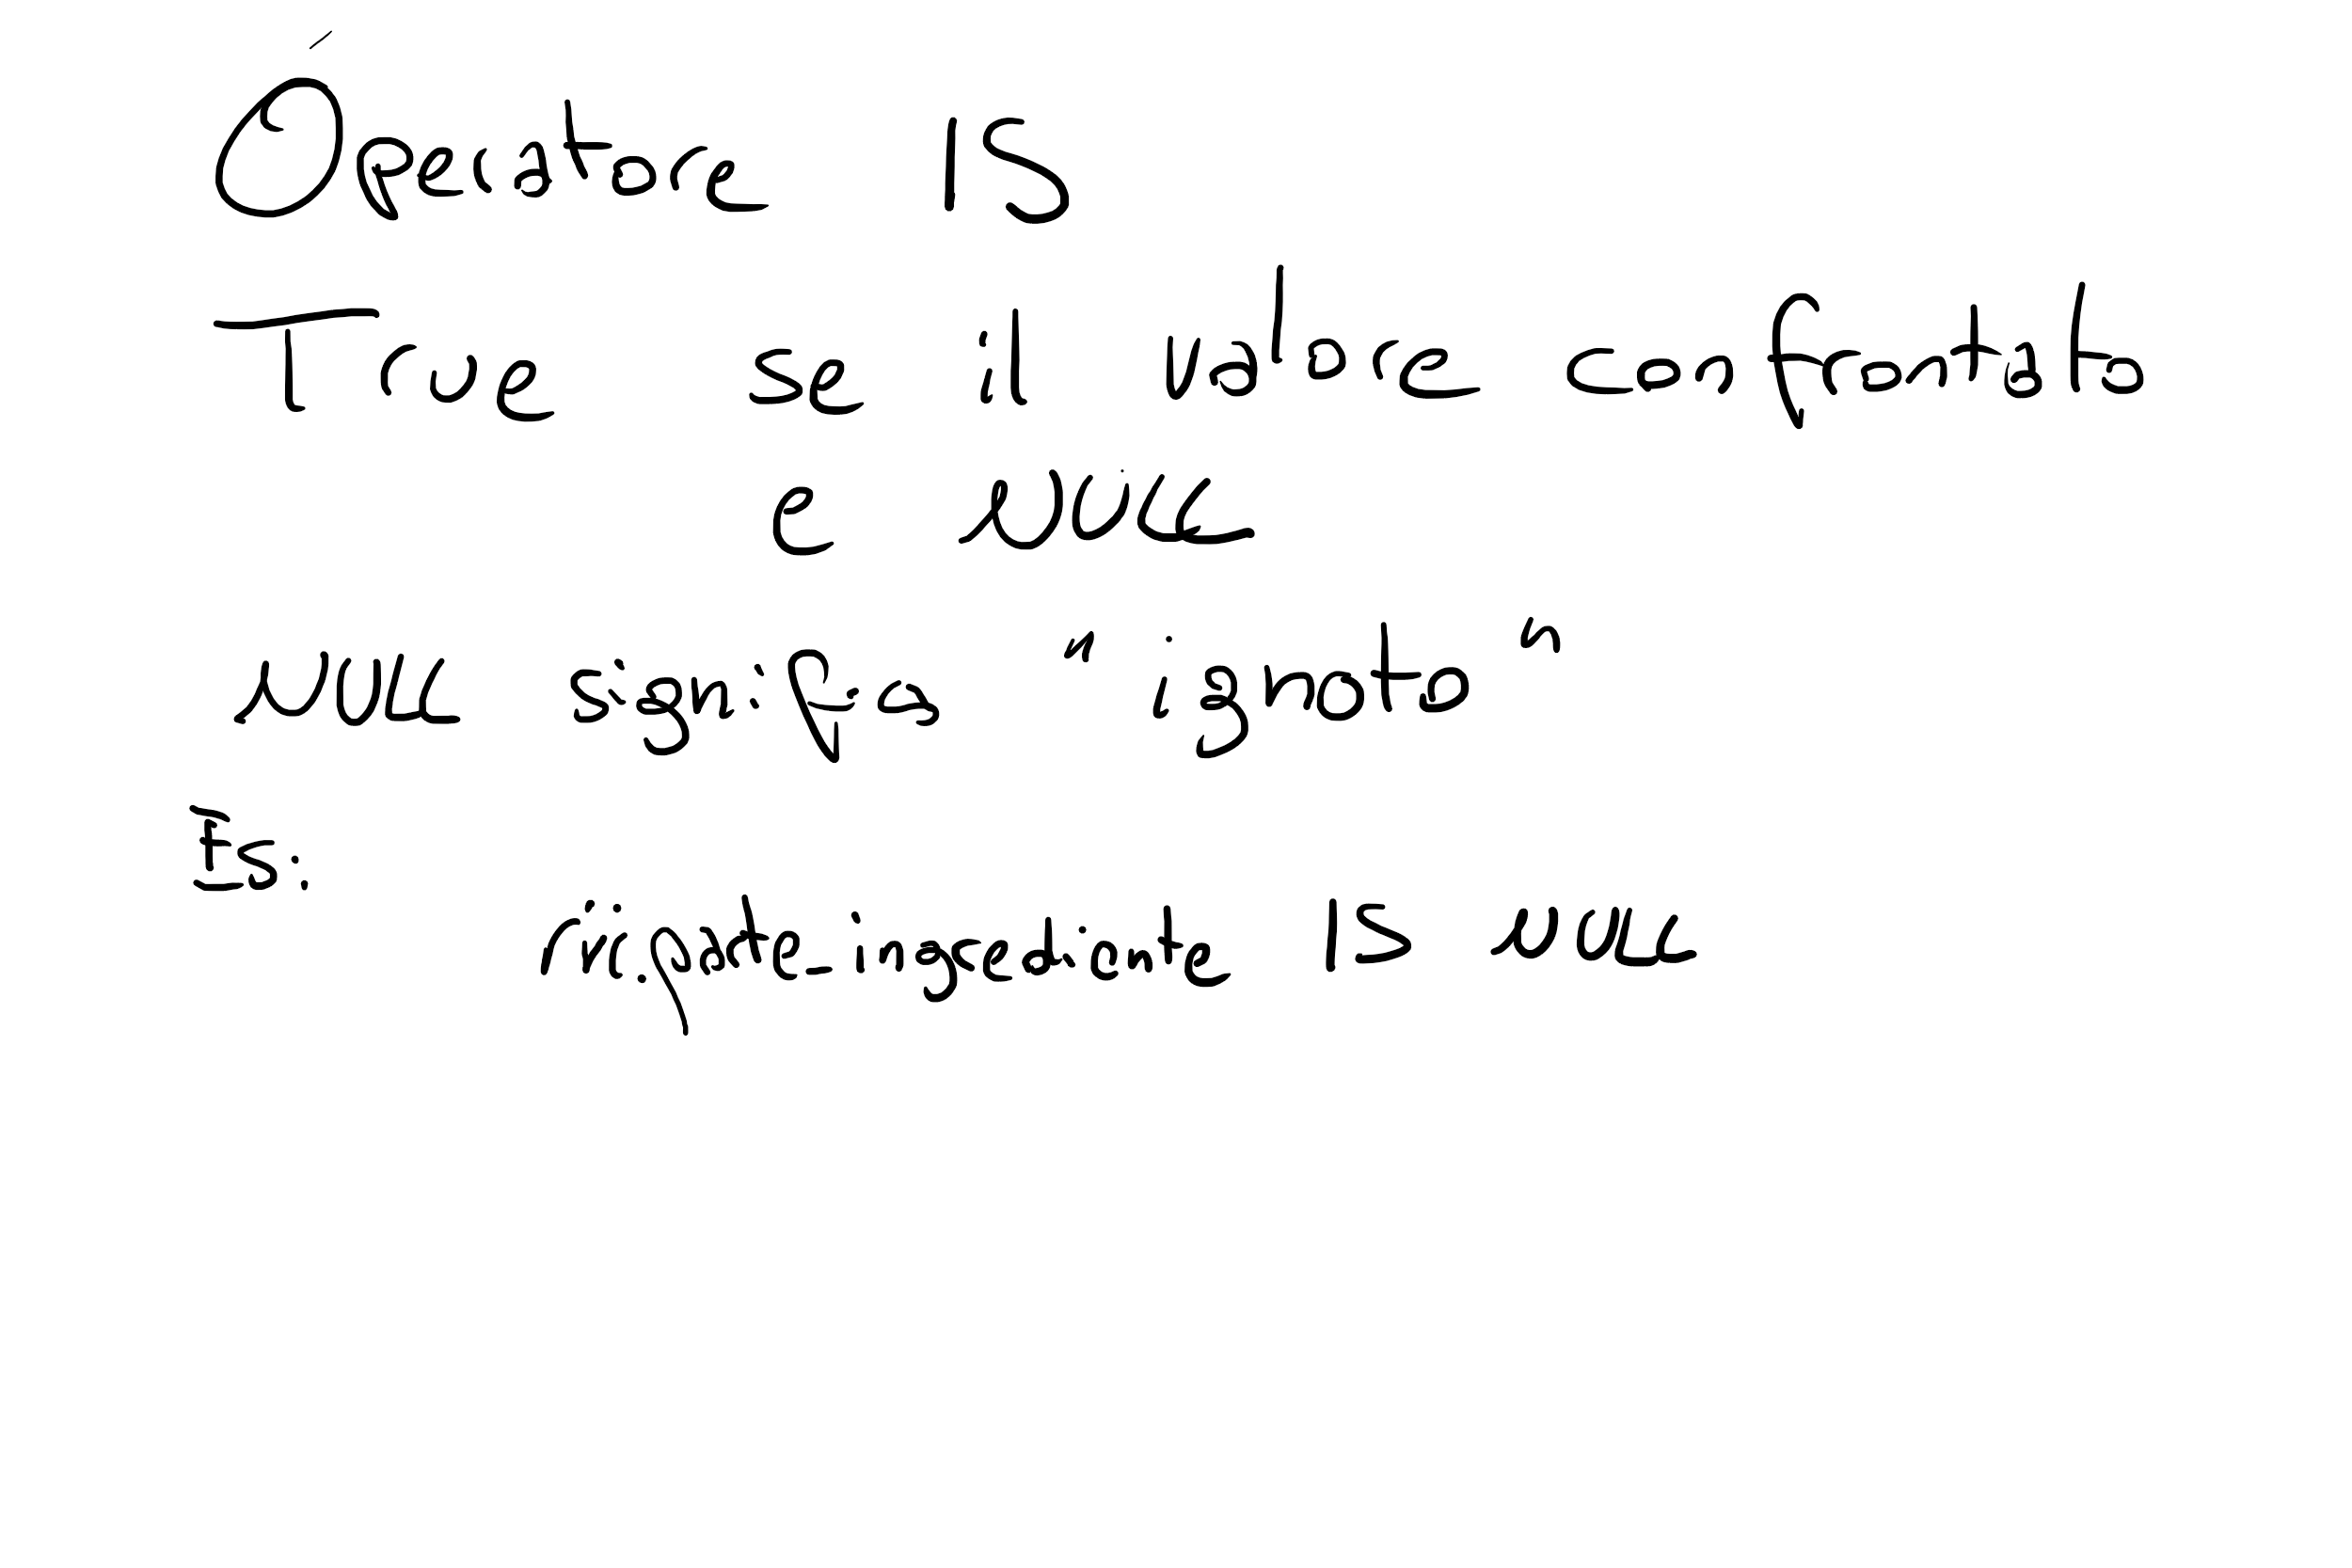 Operatore IS
True se il valore confrontato
e NULL
NULL significa "ignoto"
Es:
ri.parte_ingrediante IS NULL